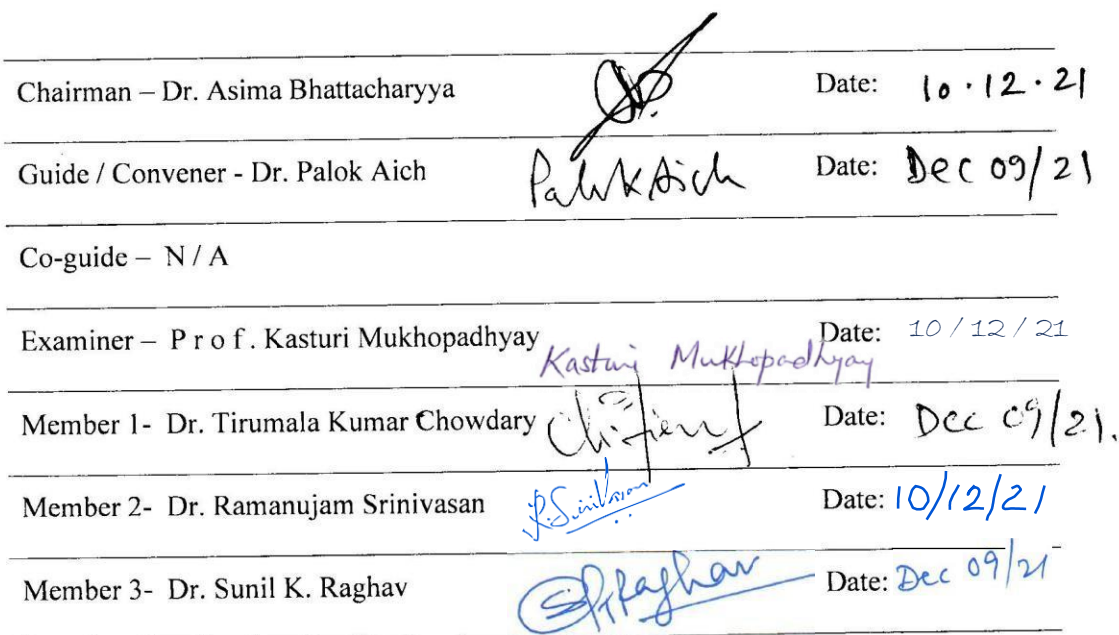 Chairman – Dr. Asima Bhattacharyya Date: 10·12·21
Guide / Convener - Dr. Palok Aich Palok Aich Date: Dec 09/21
Co-guide – N / A
Examiner – P r o f . Kasturi Mukhopadhyay Kasturi Mukhopadhyay Date: 10/12/21
Member 1- Dr. Tirumala Kumar Chowdary Date: Dec 09/21.
Member 2- Dr. Ramanujam Srinivasan R. Srinivasan Date: 10/12/21
Member 3- Dr. Sunil K. Raghav Raghav Date: Dec 09/21